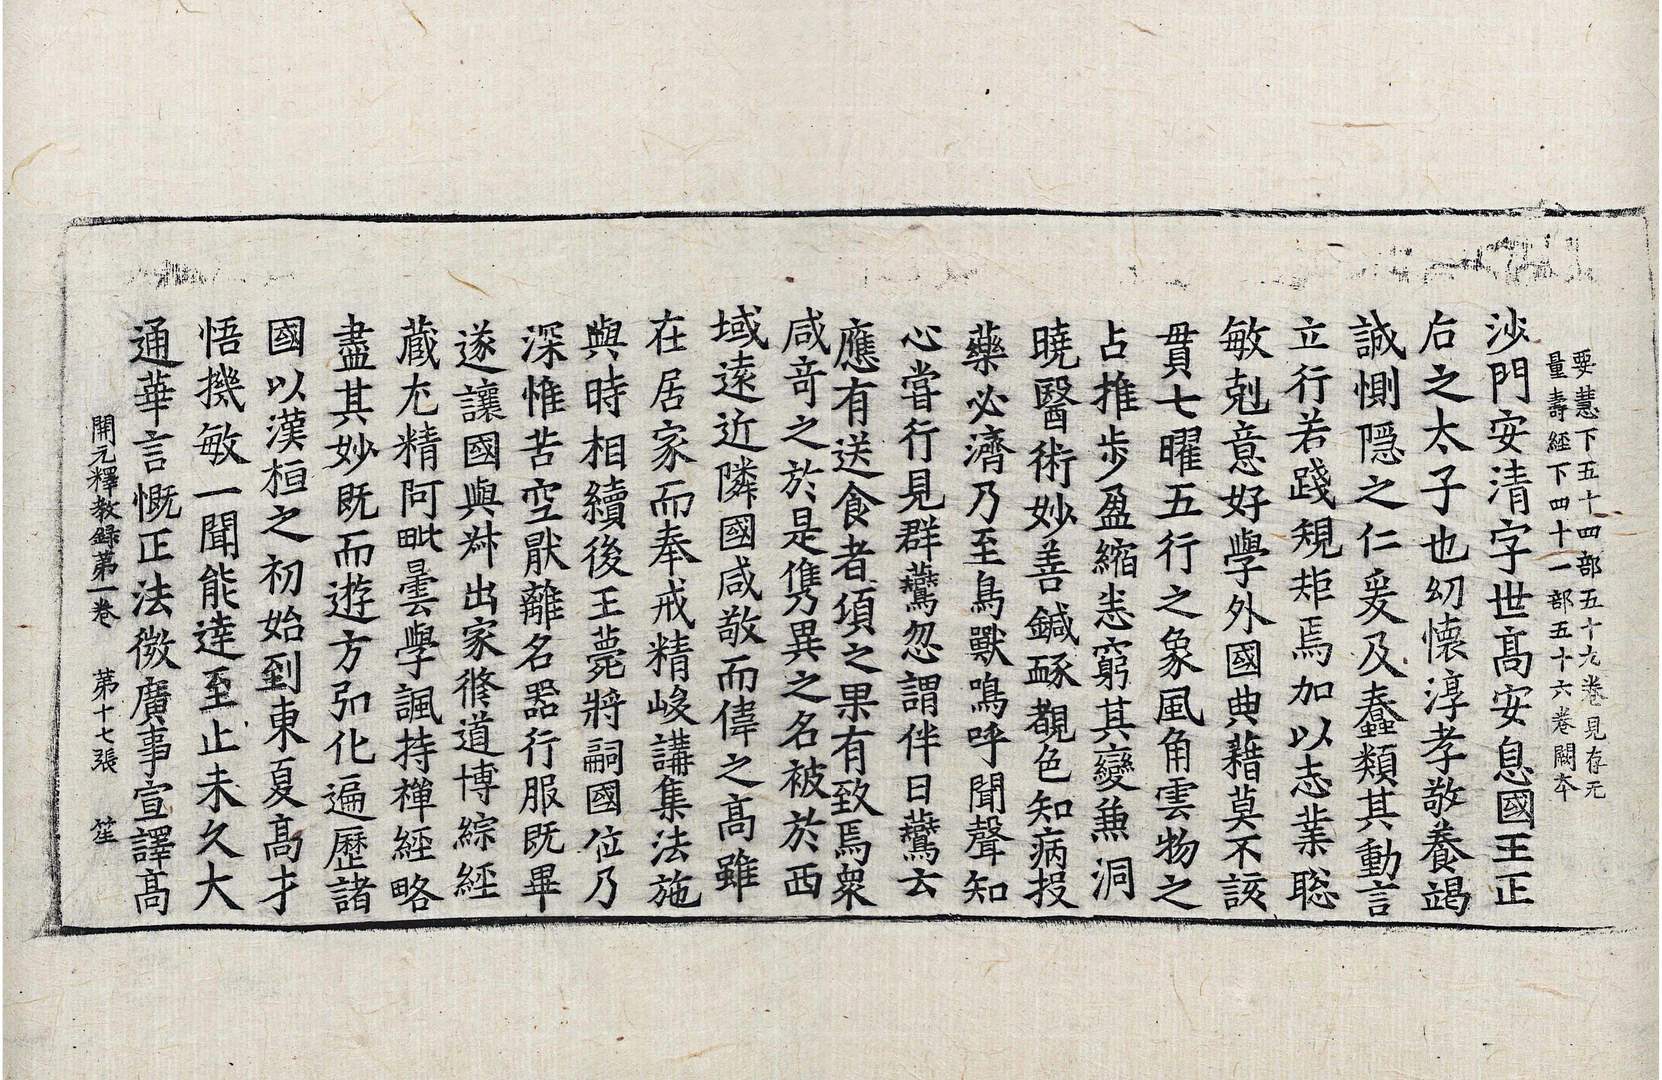 要慧下五十四部五十九卷見存无
量壽經下四十一部五十六卷闕本
沙門安清字世髙安息國王正
后之太子也幼懷淳孝敬養竭
誠惻隱之仁爰及蠢類其動言
立行若踐規矩焉加以志業聡
敏剋意好學外國典藉莫不該
貫七曜五行之象風角雲物之
占推步盈縮悉窮其變兼洞
曉醫術妙善鍼𦖥覩色知病投
藥必濟乃至鳥獸鳴呼聞聲知
心甞行見群鷰忽謂伴曰鷰云
應有送食者湏之果有致焉衆
咸竒之於是儁異之名被於西
域遠近隣國咸敬而偉之髙雖
在居家而奉戒精峻講集法施
與時相續後王薨將嗣國位乃
深惟苦空猒離名器行服既畢
遂讓國與叔出家脩道博綜經
蔵尤精阿毗曇學諷持禪經略
盡其妙既而遊方弘化遍歷諸
國以漢桓之初始到東夏髙才
悟機敏一聞能達至止未久大
通華言慨正法微廣事宣譯髙
開元釋教録苐一卷 第十七張 笙